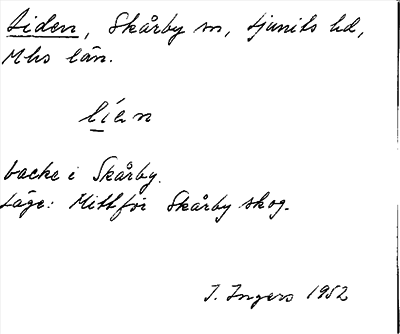 Liden, Skårby sn, Ljunits hd,
Mhs län.
líen
backe i Skårby.
Läge: Mitt för Skårby skog.
I. Ingers 1952